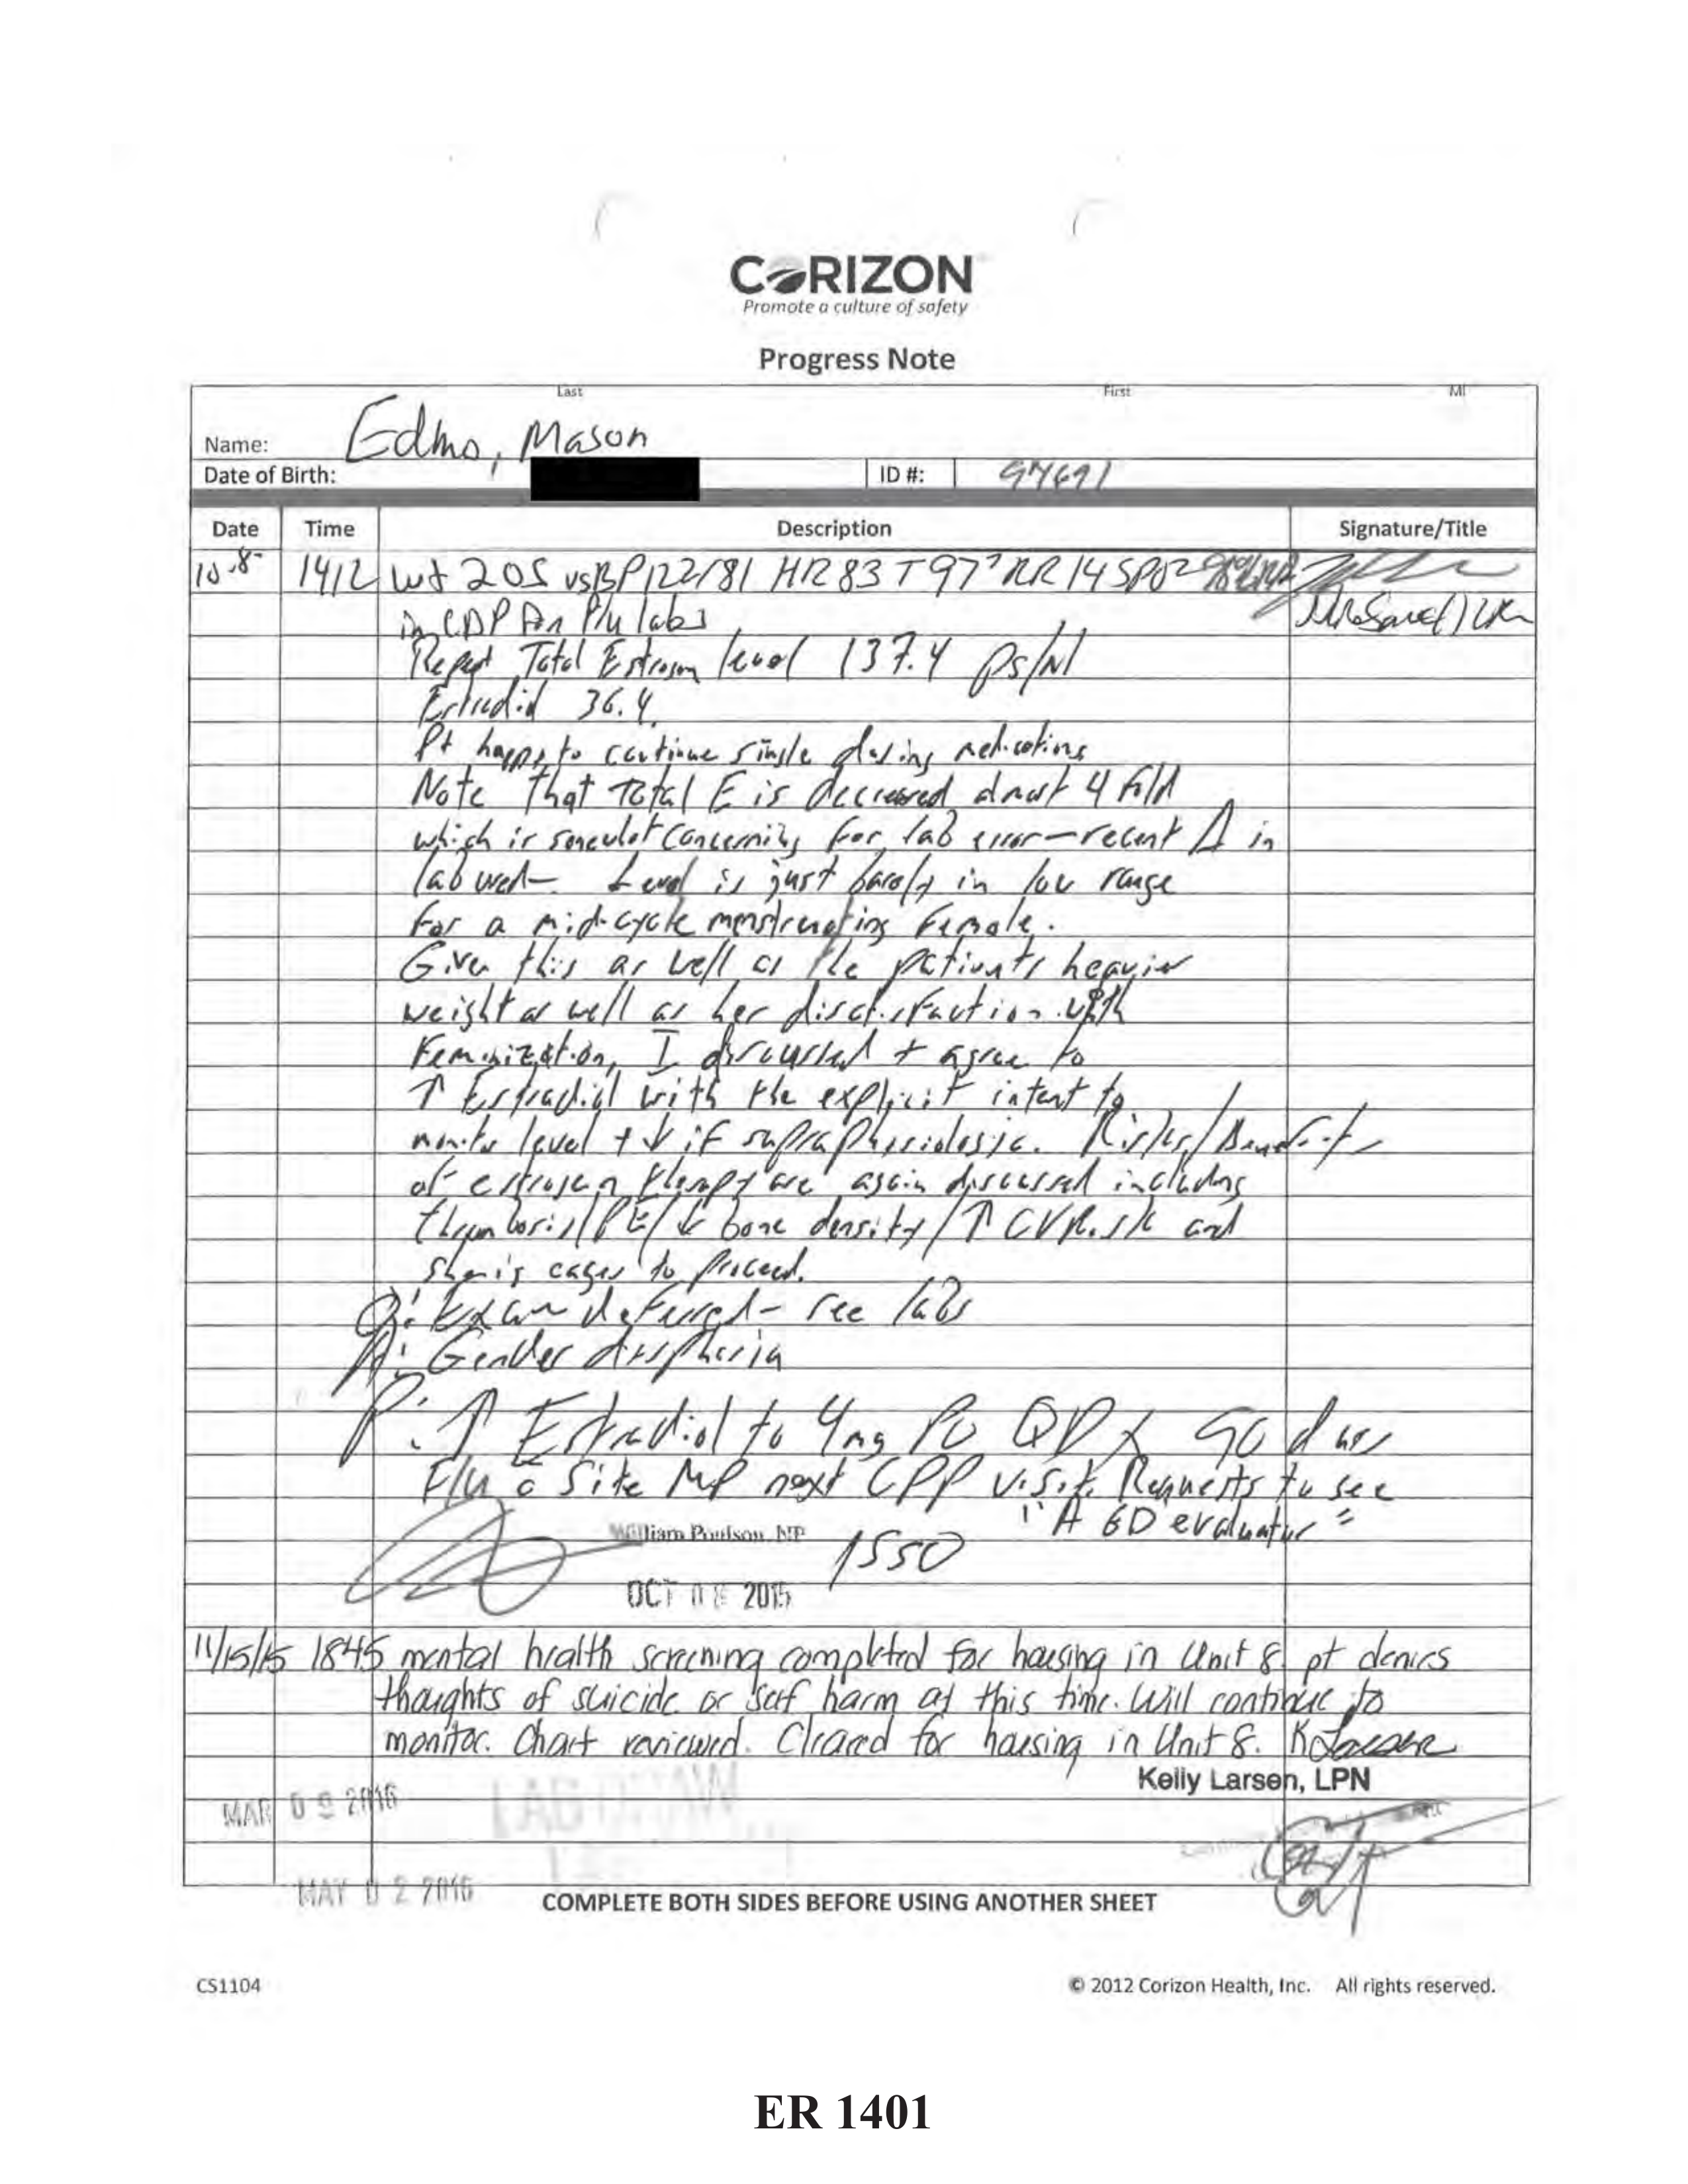 CORIZON
Promote a culture of safety
Progress Note
Last First MI
Name: Edmo, Mason
Date of Birth: ID #: 94691
Date Time Description Signature/Title
10-8- 1412 Wt 205 vs BP 122/81 HR 83 T 97⁷ RR 14 SPO2 98%
in labs
Repeat Total Estrogen level 137.4
Estradiol 36.4
Pt happy to continue single dosing medications
Note that Total E is decreased almost 4 fold
which is somewhat concerning for lab error - recent Δ in
lab used - Level is just barely in low range
for a mid-cycle menstruating female.
Given this as well as the patients heavier
weight as well as her dissatisfaction with
Feminization, I discussed + agree to
↑ Estradiol with the explicit intent to
monitor level + ↓ if supraphysiologic. Risks/Benefits
of estrogen therapy are again discussed including
thrombosis/PE/↓ bone density/↑ CV Risk and
she is eager to proceed.
O: Exam deferred - see labs
A: Gender dysphoria
P: ↑ Estradiol to 4mg PO QD x 90 days
F/u c Site MP next CPP visit. Requests to see
"A GD evaluator"
William Poulson, NP 1550
OCT 08 2015
11/15/15 1845 mental health screening completed for housing in Unit 8. pt denies
thoughts of suicide or self harm at this time. Will continue to
monitor. Chart reviewed. Cleared for housing in Unit 8. K Larsen
Kelly Larsen, LPN
MAR 09 2016 LAB DRAW
MAY 02 2016 COMPLETE BOTH SIDES BEFORE USING ANOTHER SHEET
CS1104 © 2012 Corizon Health, Inc. All rights reserved.
ER 1401